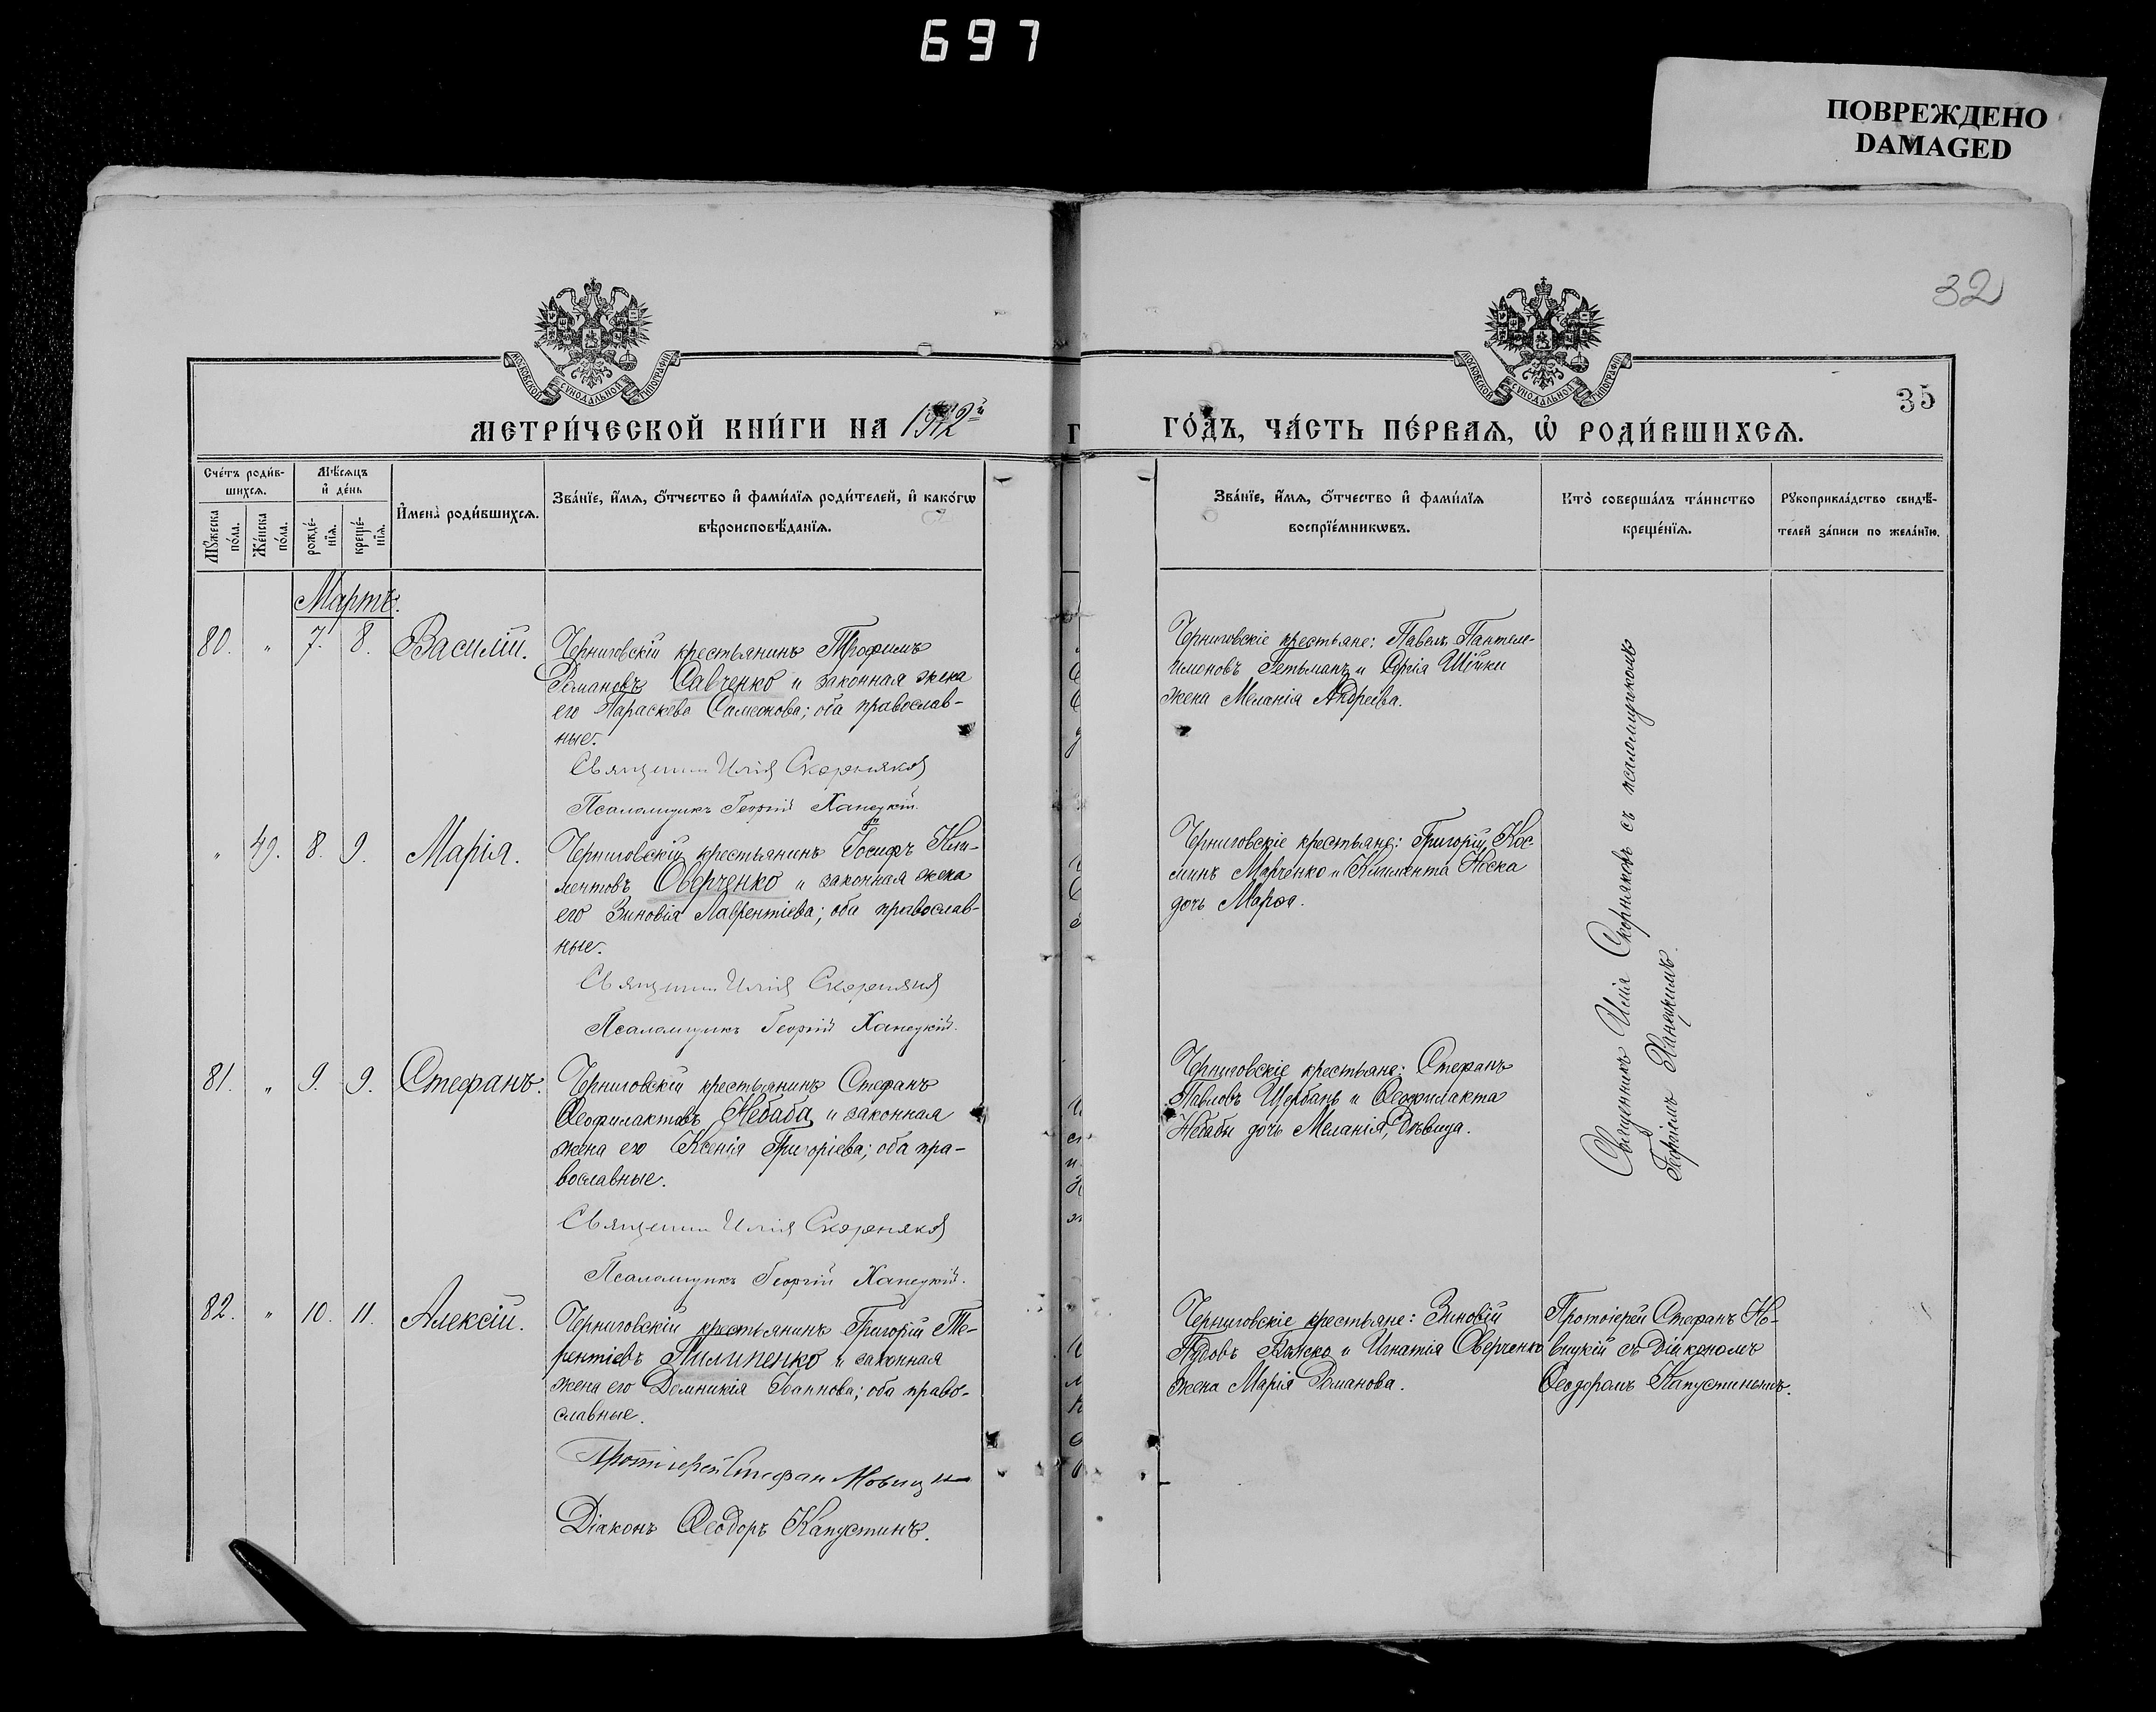 697
ПОВРЕЖДЕНО
DAMAGED
32
35
МОСКОВСКОЙ СѴНОДАЛЬНОЙ ТИПОГРАФІИ
МОСКОВСКОЙ СѴНОДАЛЬНОЙ ТИПОГРАФІИ
МЕТРИ́ЧЕСКОЙ КНИ́ГИ НА 1912й
ГО́ДЪ, ЧА́СТЬ ПЕ́РВАѦ, Ѡ҆ РОДИ́ВШИХСѦ.
Сче́тъ роди́в-
шихсѧ.
Мꙋ́жеска по́ла.
Же́нска по́ла.
Мѣ́сѧцъ
и҆ де́нь
рожде́-
нїѧ.
креще́-
нїѧ.
И҆мена̀ роди́вшихсѧ.
Зва́нїе, и҆́мѧ, ѻ҆́тчество и҆ фами́лїѧ роди́телей, и҆ како́гѡ
вѣроисповѣ́данїѧ.
Зва́нїе, и҆́мѧ, ѻ҆́тчество и҆ фами́лїѧ
воспрїе́мникѡвъ.
Кто̀ соверша́лъ та́инство
креще́нїѧ.
Рꙋкоприкла́дство свидѣ́-
телей за́писи по жела́нїю.
Мартъ.
80. " 7. 8. Василій. Черниговскій крестьянинъ Трофимъ
Романовъ Савченко и законная жена
его Параскева Самсонова; оба православ-
ные.
Священник Илія Скорняков
Псаломщикъ Георгій Ханецкій.
Черниговскіе крестьяне: Павелъ Пантеле-
имоновъ Гетьманъ и Сергія Шійки
жена Меланія Андреева.
Священникъ Илія Скорняковъ съ псаломщикомъ
Георгіемъ Ханецкимъ.
" 49. 8. 9. Марія. Черниговскій крестьянинъ Іосифъ Кли-
ментовъ Оверченко и законная жена
его Зиновія Лаврентіева; оба православ-
ные.
Священник Илія Скорняков
Псаломщикъ Георгій Ханецкій.
Черниговскіе крестьяне: Григорій Кос-
минъ Марченко и Климента Носка
дочь Марѳа.
81. " 9. 9. Стефанъ. Черниговскій крестьянинъ Стефанъ
Ѳеофилактовъ Небаба и законная
жена его Ксенія Григоріева; оба пра-
вославные.
Священник Илія Скорняков
Псаломщикъ Георгій Ханецкій.
Черниговскіе крестьяне: Стефанъ
Павловъ Щербань и Ѳеофилакта
Небабы дочь Меланія, дѣвица.
82. " 10. 11. Алексій. Черниговскій крестьянинъ Григорій Те-
рентіевъ Пилипенко и законная
жена его Домникія Іоаннова; оба право-
славные.
Протоіерей Стефан Новицкій
Діаконъ Ѳеодоръ Капустинъ.
Черниговскіе крестьяне: Зиновій
и Игнатія Оверченко
жена Марія Романова.
Протоіерей Стефанъ Но-
вицкій съ діакономъ
Ѳеодоромъ Капустинымъ.